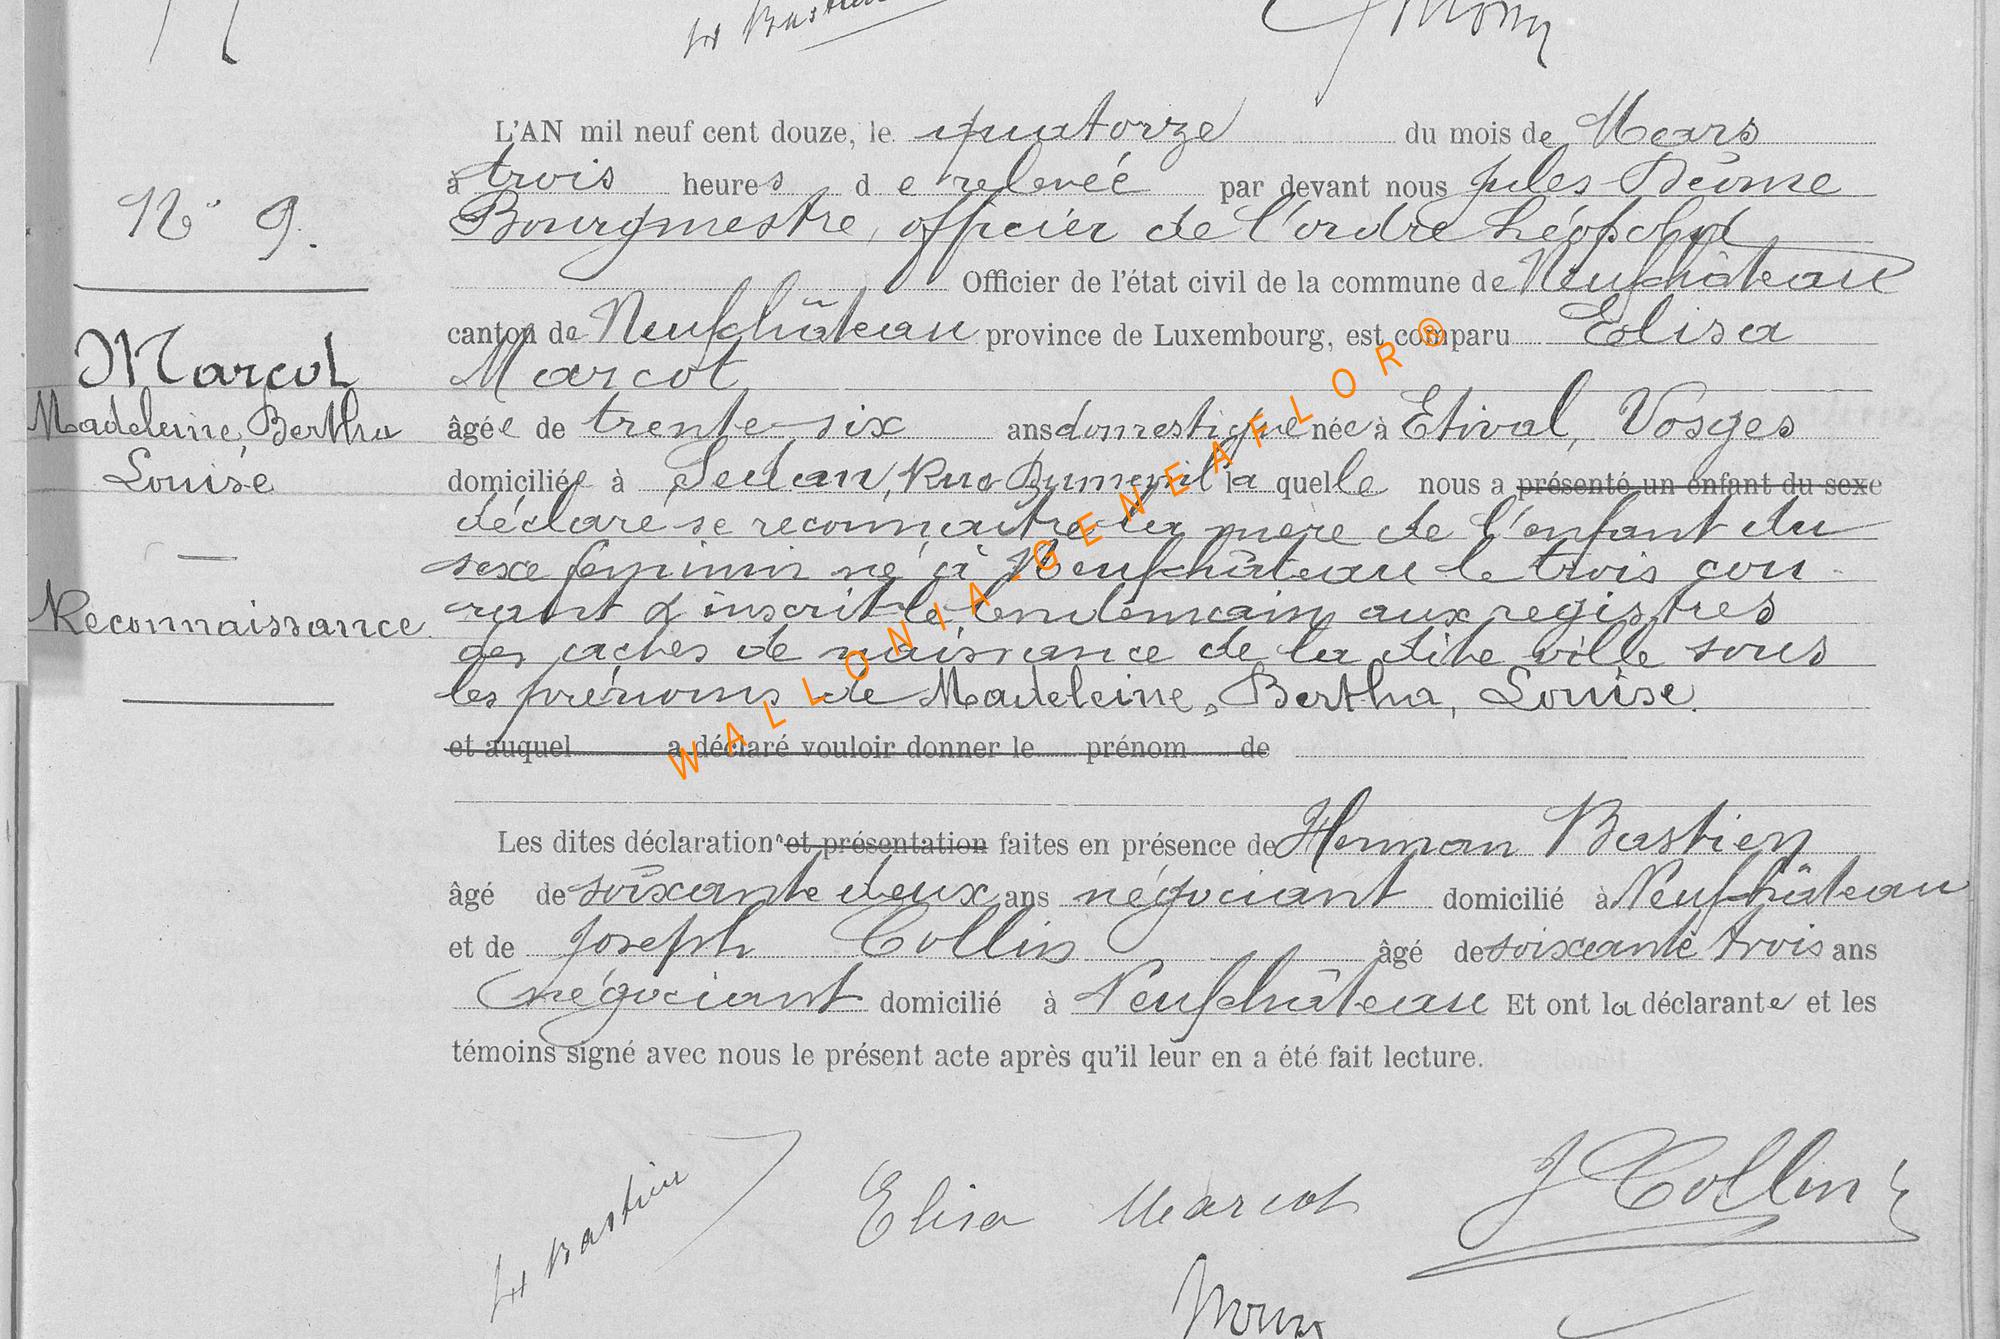 H Bastien
L'AN mil neuf cent douze, le quatorze du mois de Mars
à trois heures de relevée par devant nous Jules
Bourgmestre, officier de l'ordre Léopold
Officier de l'état civil de la commune de Neufchâteau
canton de Neufchâteau province de Luxembourg, est comparu Elisa
Marcot
âgée de trente-six ans domestique née à Etival, Vosges
domiciliée à Sedan, Rue la quelle nous a présenté un enfant du sexe
déclaré se reconnaitre la mère de l'enfant du
sexe feminin né à Neufchâteau le trois cou-
rant & inscrit le lendemain aux registres
des actes de naissance de la dite ville sous
les prénoms de Madeleine, Bertha, Louise.
et auquel a déclaré vouloir donner le prénom de
Les dites déclarations et présentation faites en présence de Herman Bastien
âgé de soixante deux ans négociant domicilié à Neufchâteau
et de Joseph Collin âgé de soixante trois ans
négociant domicilié à Neufchâteau Et ont la déclarante et les
témoins signé avec nous le présent acte après qu'il leur en a été fait lecture.
N° 9.
Marcot
Madeleine, Bertha
Louise
Reconnaissance
H Bastien
Elisa Marcot
J Collin
WALLONIA-GENEAFLOR®